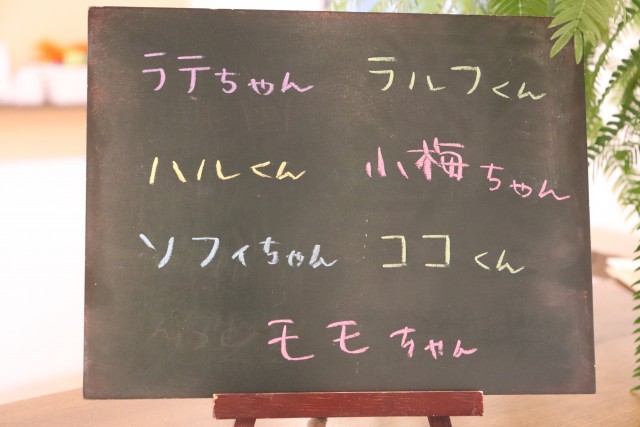 ラテちゃん ラルフくん
ハルくん 小梅ちゃん
ソフィちゃん ココくん
モモちゃん